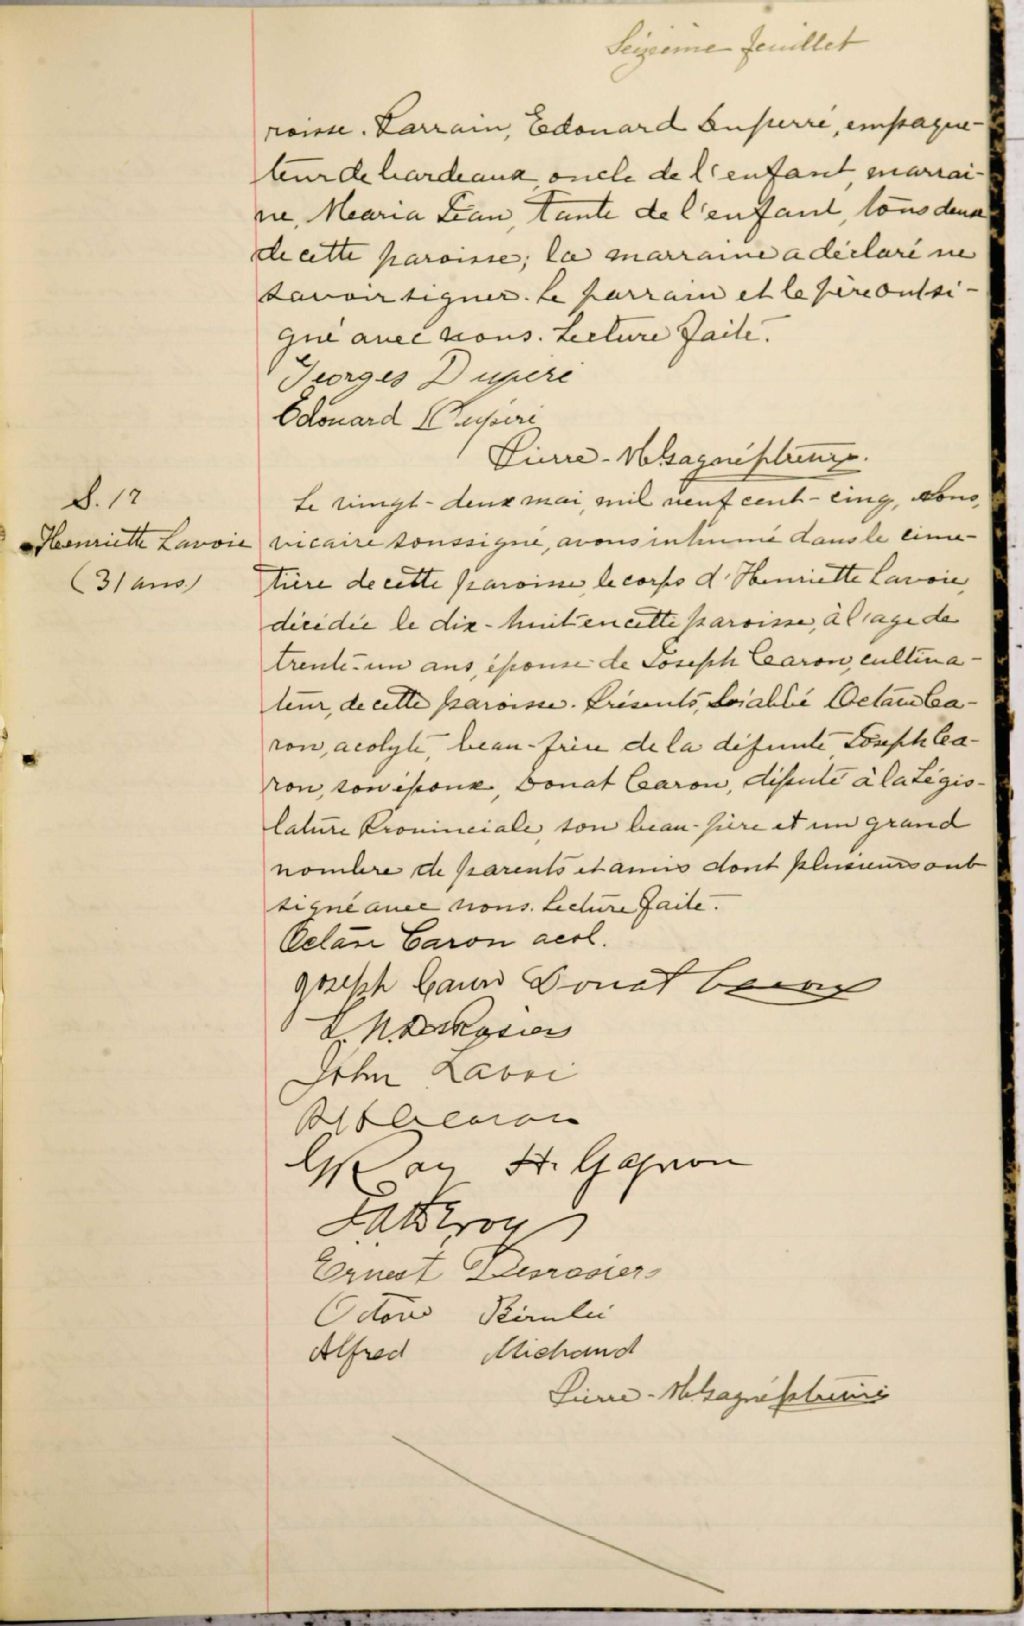 Seizième feuillet
roisse. Parrain, Edouard Duperré, empaque-
teur de bardeaux, oncle de l'enfant, marrai-
ne, Maria Jean, tante de l'enfant, tous deux
de cette paroisse; la marraine a déclaré ne
savoir signer. Le parrain et le père ont si-
gné avec nous. Lecture faite.
Georges Duperé
Edouard Dupéré
Pierre-M Gagné ptre vic.
S. 17
Henriette Lavoie
(31 ans)
Le vingt-deux mai, mil neuf cent-cinq, Nous,
vicaire soussigné, avons inhumé dans le cime-
tière de cette paroisse, le corps d'Henriette Lavoie,
décédée le dix-huit en cette paroisse, à l'age de
trente-un ans, épouse de Joseph Caron, cultiva-
teur, de cette paroisse. Présents, l'abbé Octave Ca-
ron, acolyte, beau-frère de la défunte, Joseph Ca-
ron, son époux, Donat Caron, député à la Légis-
lature Provinciale, son beau-père et un grand
nombre de parents et amis dont plusieurs ont
signé avec nous. Lecture faite.
Octave Caron acol.
Joseph Caron Donat Caron
DesRosiers
John Lavoi
Caron
Roy H. Gagnon
Ernest Desrosiers
Octave
Alfred Michaud
Pierre-M Gagné ptre vic